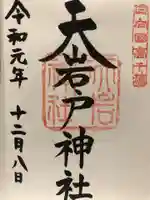 日向國高千穂
天岩戸神社
令和元年 十二月八日